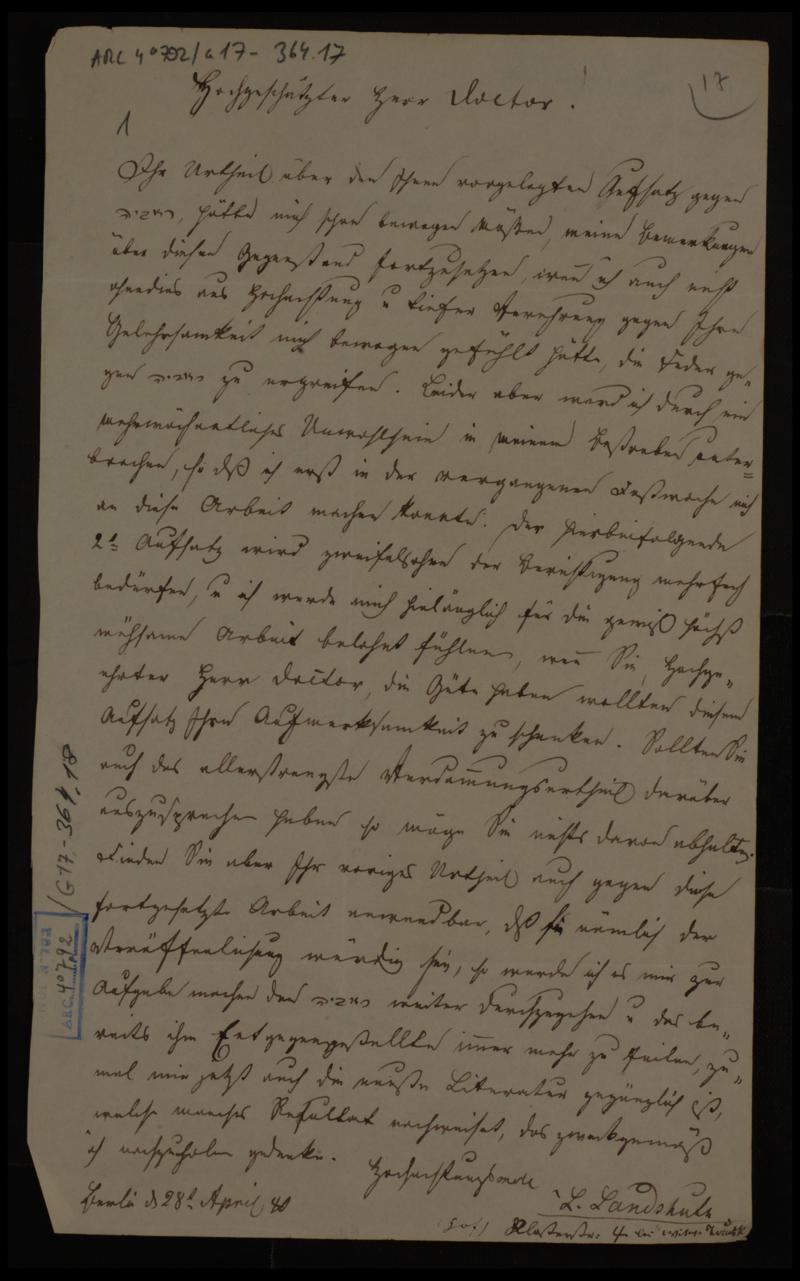 ARC 4° 792/G 17 - 364.17
17
Hochgeschätzter Herr Doctor.
1
Ihr Urtheil über den Ihnen vorgelegten Aufsatz gegen
hätte mich schon bewegen müssen, meine Bemerkungen
über diesen Gegenstand fortzusetzen, wenn ich auch nicht
ohnedies aus Hochachtung u tiefer Verehrung gegen Ihre
Gelehrsamkeit mich bewogen gefühlt hätte, die Feder ge-
gen zu ergreifen. Leider aber ward ich durch ein
mehrwöchentliches Unwohlsein in meinem Bestreben unter-
brochen, so daß ich erst in der vergangenen Festwoche mich
an diese Arbeit machen konnte. Der hierbeifolgende
2te Aufsatz wird zweifelsohne der Berichtigung mehrfach
bedürfen, u ich werde mich hinlänglich für die gewiß höchst
mühsame Arbeit belohnt fühlen, wenn Sie, Hochge-
ehrter Herr Doctor, die Güte haben wollten diesem
Aufsatz Ihre Aufmerksamkeit zu schenken. Sollten Sie
auch das allerstrengste Verdammungsurtheil darüber
auszusprechen haben so möge Sie nichts davon abhalten.
Finden Sie aber Ihr voriges Urtheil auch gegen diese
fortgesetzte Arbeit anwendbar, daß sie nämlich der
Veröffentlichung würdig sei, so werde ich es mir zur
Aufgabe machen den weiter durchzugehen u das be-
reits ihm Entgegengestellte immer mehr zu feilen, zu-
mal mir jetzt auch die neuste Literatur zugänglich ist,
welche manches Resultat nachweiset, das zweckgemäß
ich nachzuholen gedenke.
Hochachtungsvoll
Berlin d 28t April 40
L. Landshuth
Klosterstr.
/G17-364.18
ARC. 4° 792